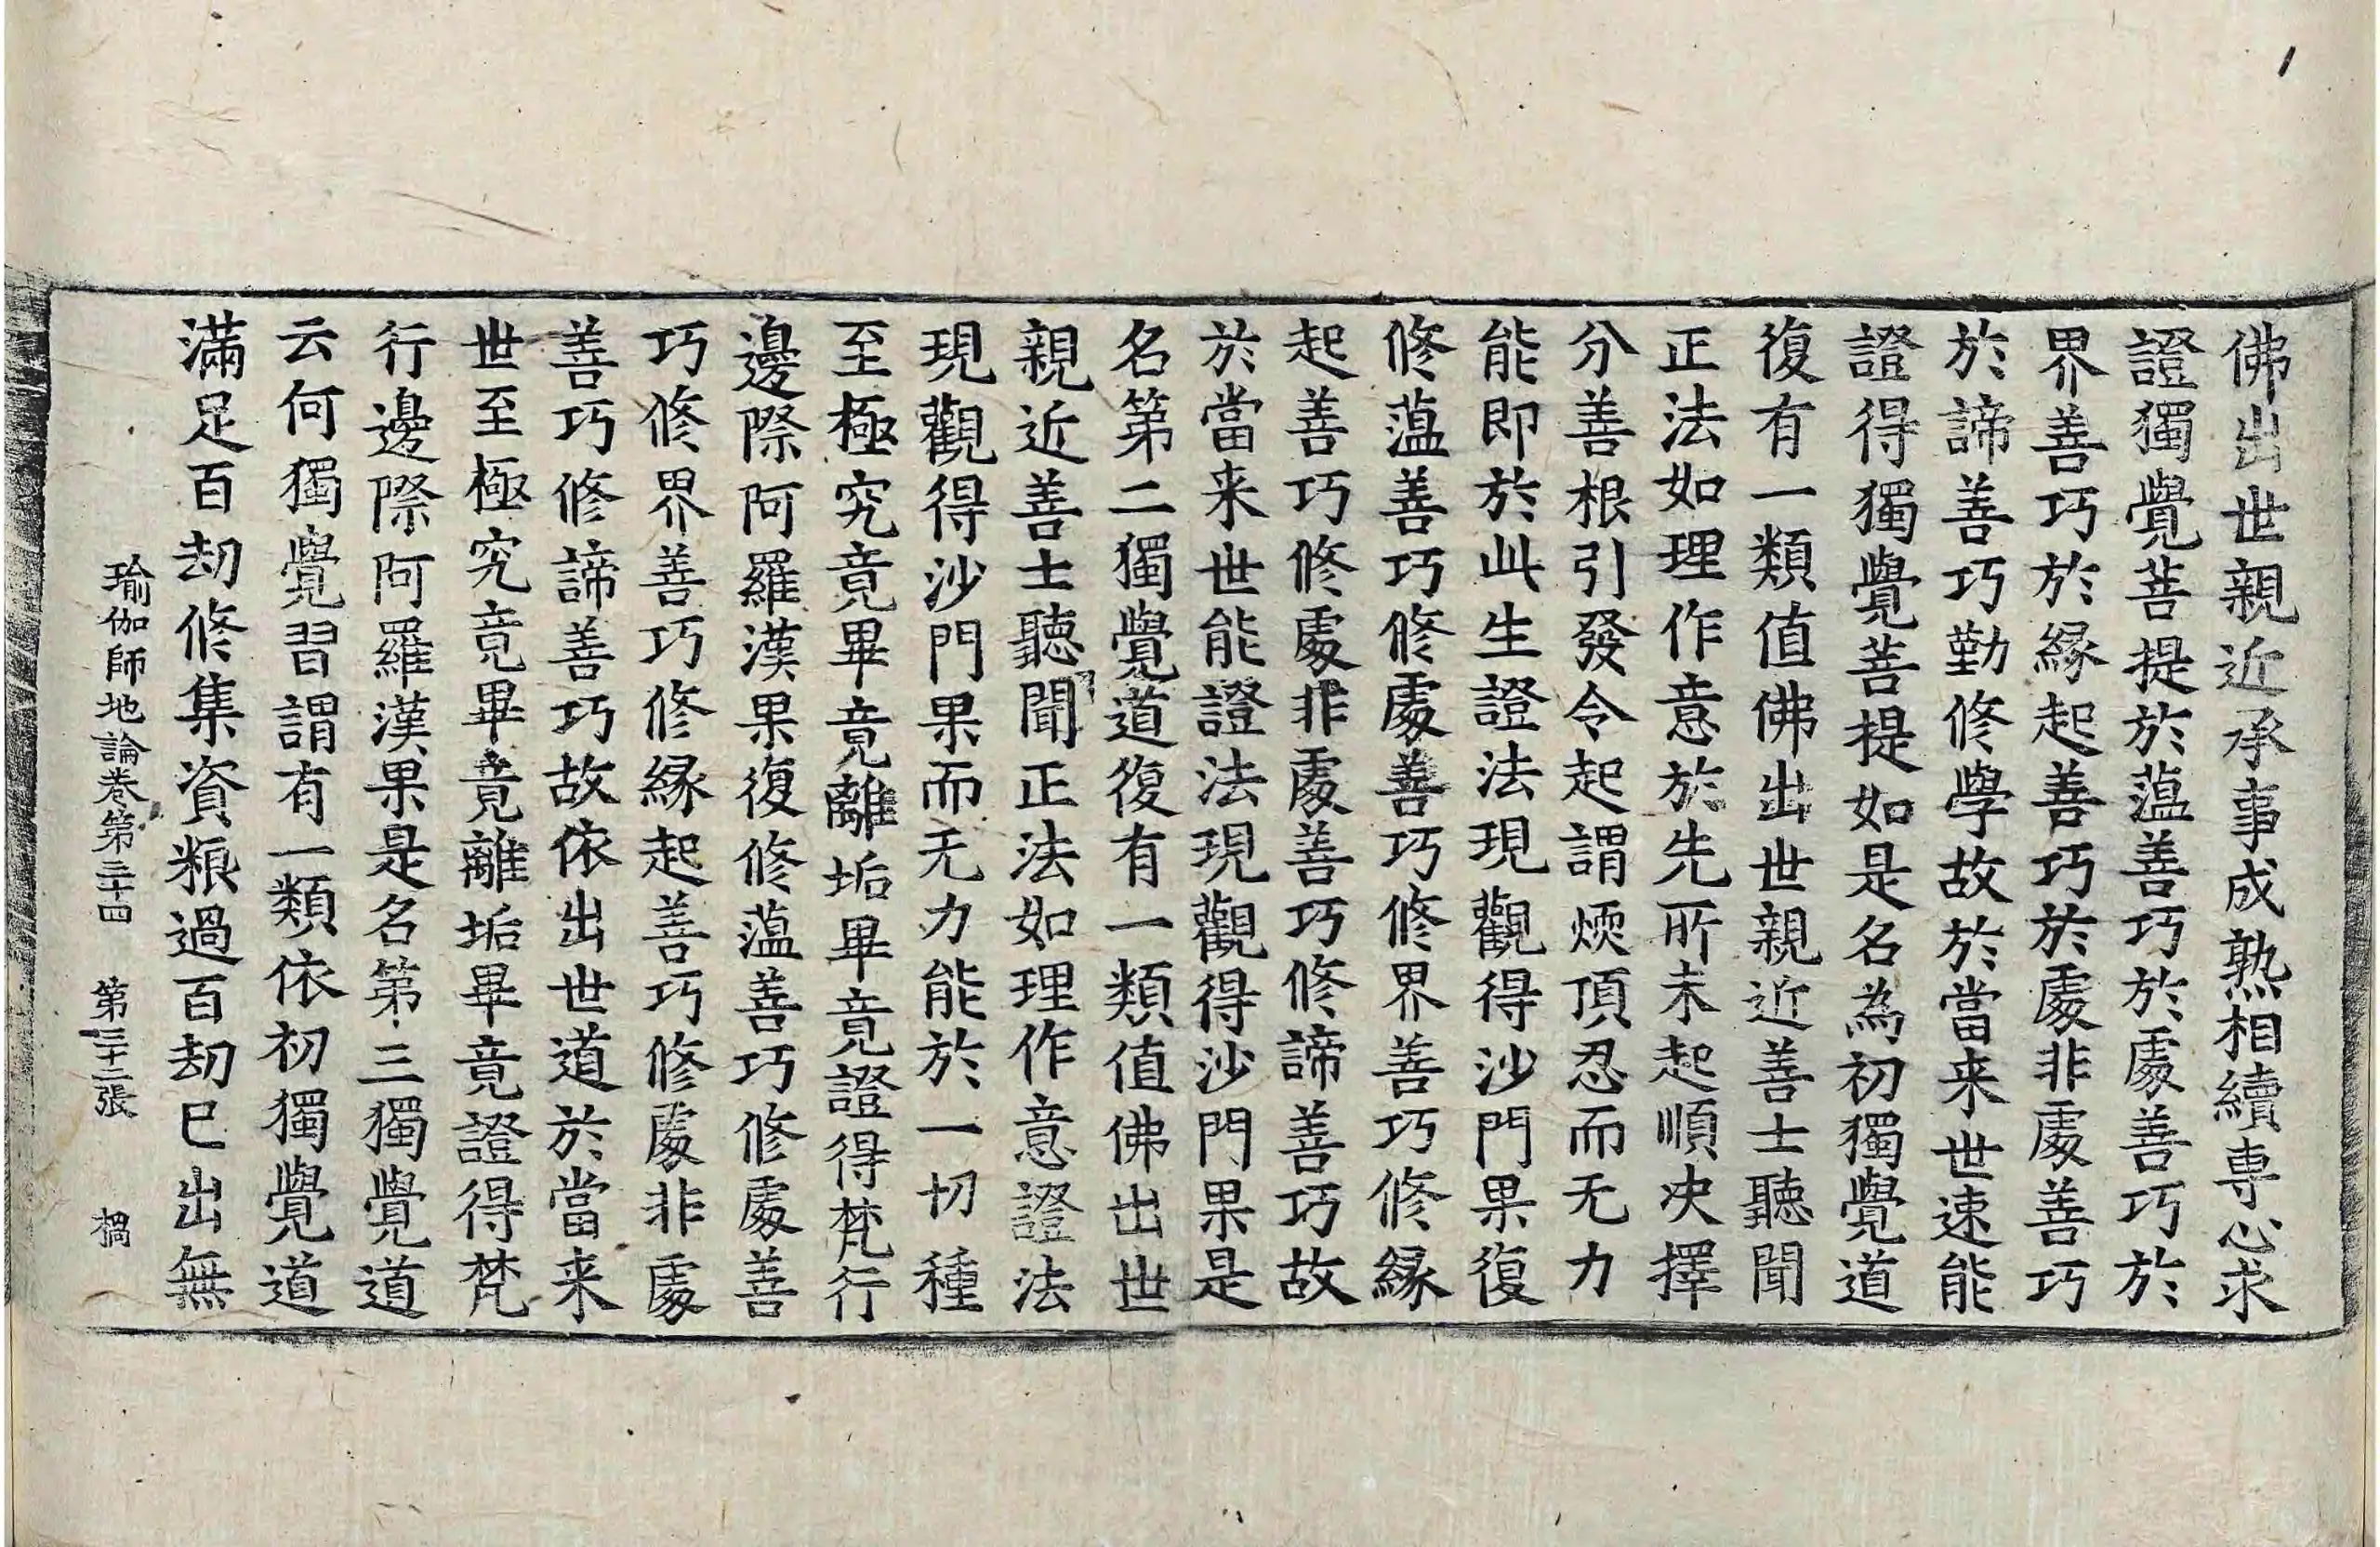 佛出世親近承事成熟相續専心求
證獨覺菩提於蕰善巧於處善巧於
界善巧於縁起善巧於處非處善巧
於諦善巧勤修學故於當来世速能
證得獨覺菩提如是名為初獨覺道
復有一類值佛出世親近善士聽聞
正法如理作意於先所未起順决擇
分善根引發令起謂煗頂忍而无力
能即於此生證法現觀得沙門果復
修蕰善巧修處善巧修界善巧修縁
起善巧修處非處善巧修諦善巧故
於當来世能證法現觀得沙門果是
名第二獨覺道復有一類值佛出世
親近善士聽聞正法如理作意證法
現觀得沙門果而无力能於一切種
至極究竟畢竟離垢畢竟證得梵行
邊際阿羅漢果復修蕰善巧修處善
巧修界善巧修縁起善巧修處非處
善巧修諦善巧故依出世道於當来
世至極究竟畢竟離垢畢竟證得梵
行邊際阿羅漢果是名第三獨覺道
云何獨覺習謂有一類依初獨覺道
滿足百劫修集資粮過百劫已出無
瑜伽師地論卷第三十四 第三十二張